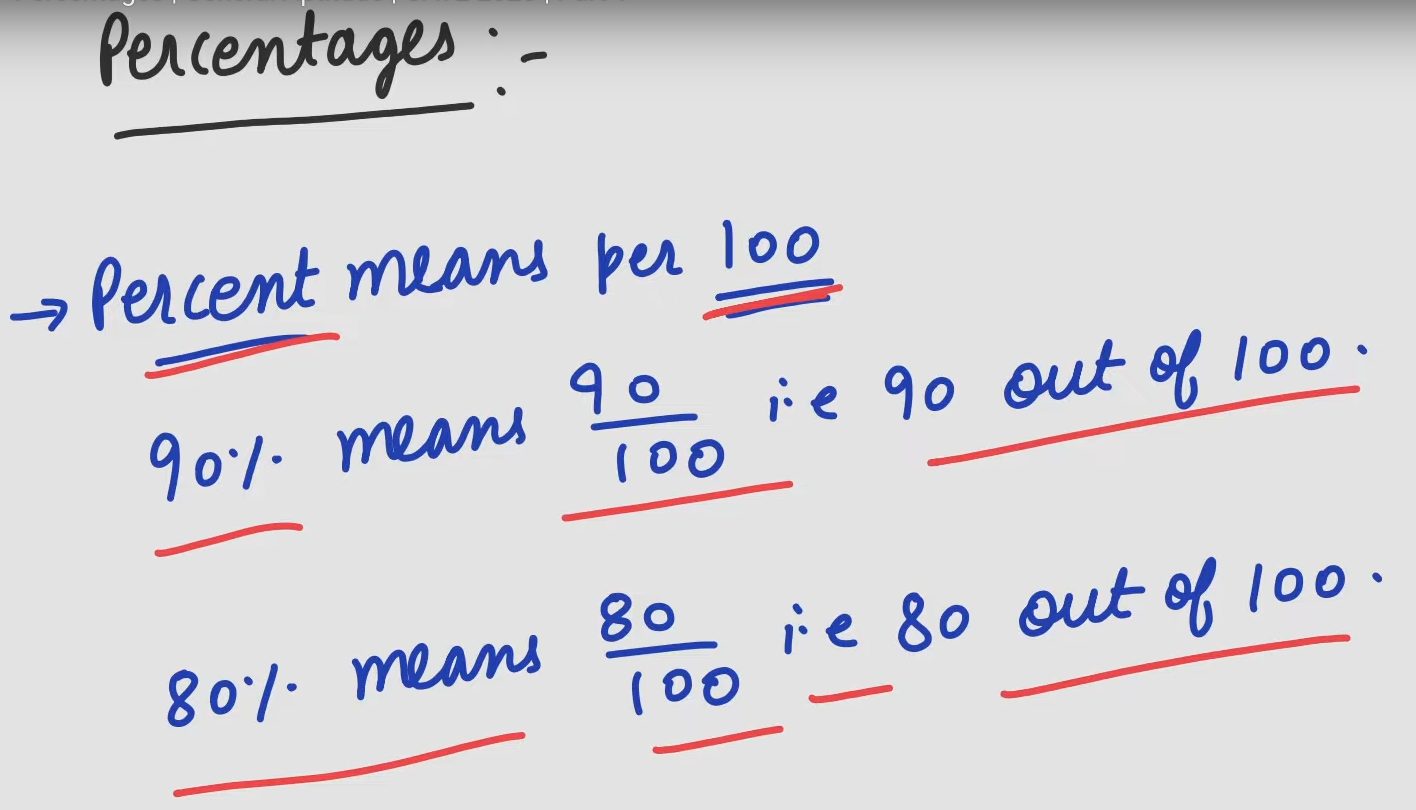 Percentages :-
→ Percent means per 100
90% means 90/100 i.e 90 out of 100.
80% means 80/100 i.e 80 out of 100.